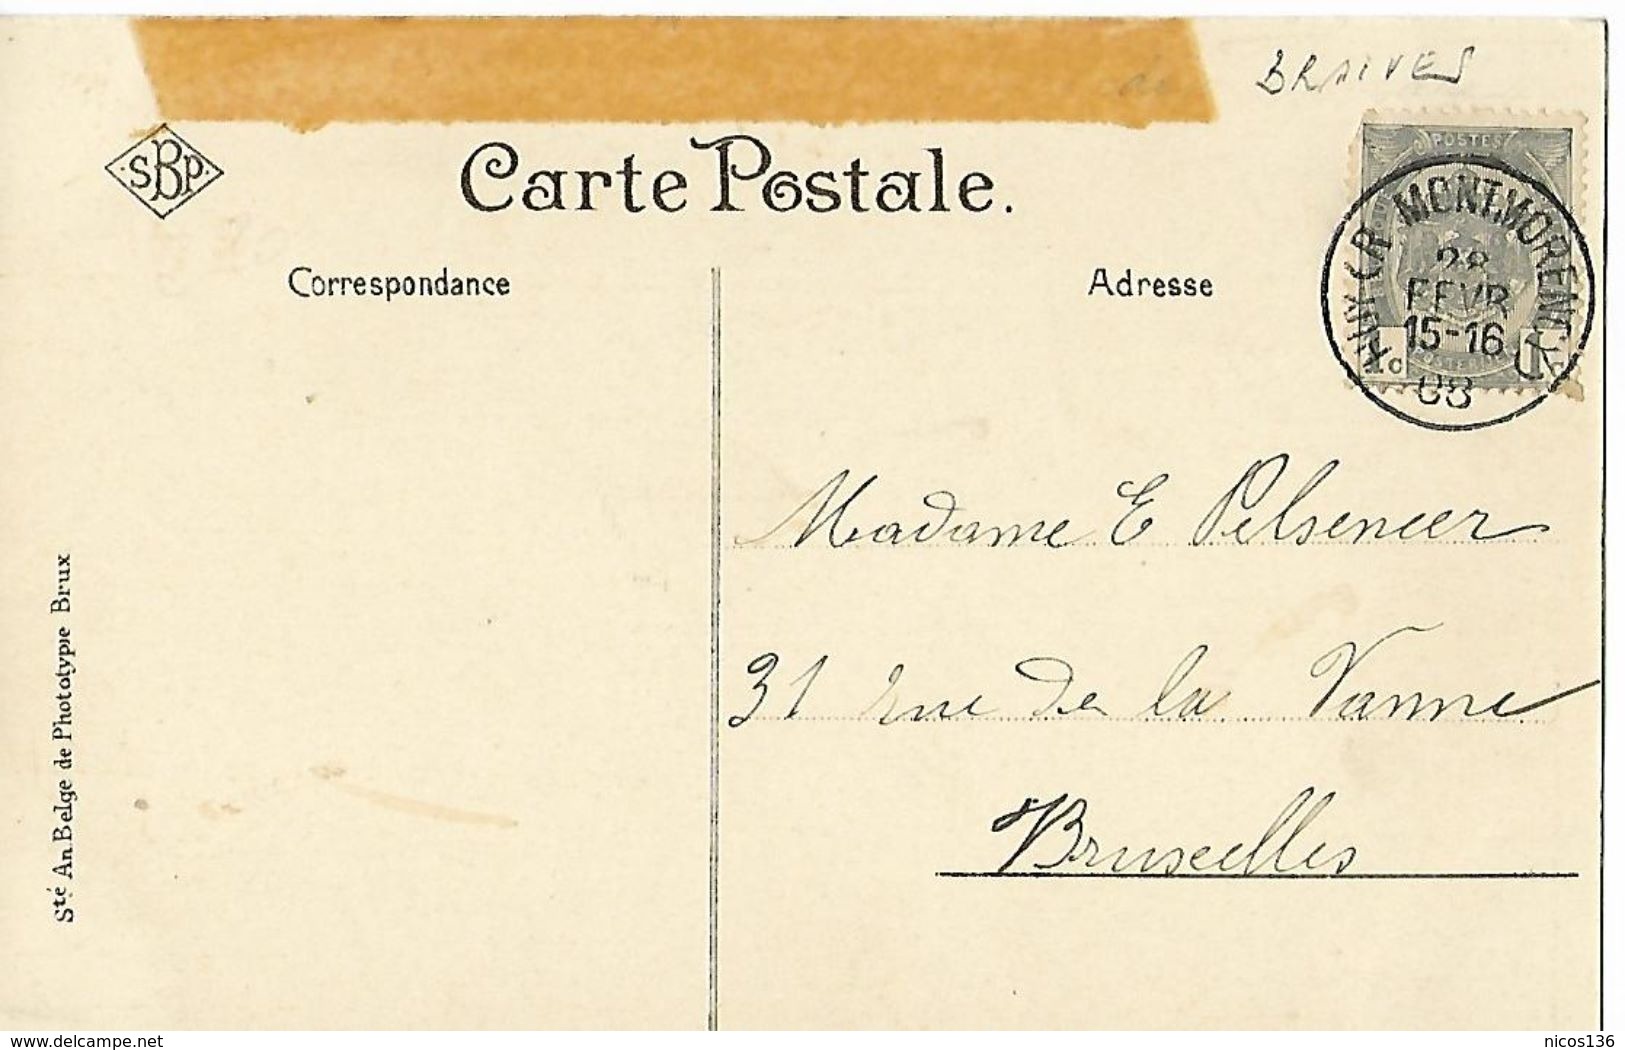 BRAIVES
SBP
Carte Postale.
POSTES
HUY (R. MONTMORENCY)
28
FEVR
15-16
08
Correspondance
Adresse
Madame E Pelseneer
31 rue de la Vanne
Bruxelles
Sté An. Belge de Phototypie Brux
www.delcampe.net
nicos136